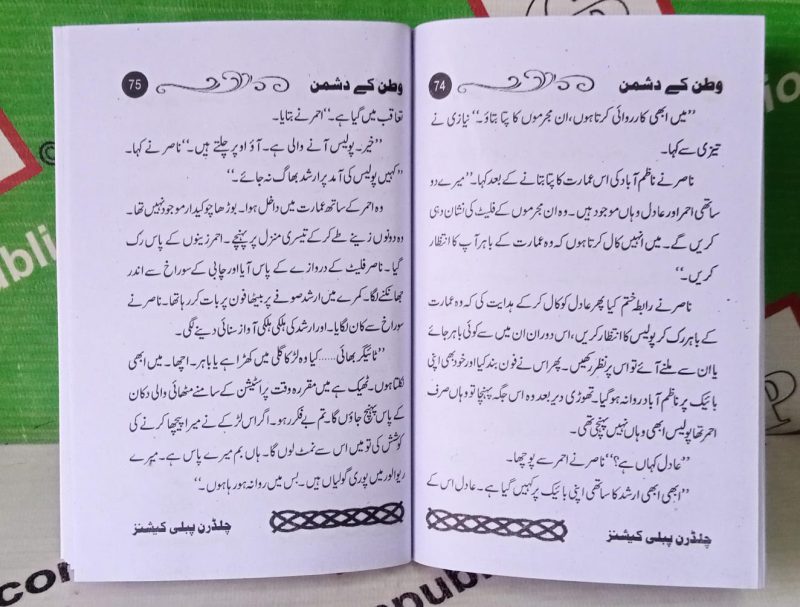 وطن کے دشمن 74
”میں ابھی کارروائی کرتا ہوں، ان مجرموں کا پتا بتاؤ۔“ نیازی نے
تیزی سے کہا۔
ناصر نے ناظم آباد کی اس عمارت کا پتا بتانے کے بعد کہا۔ ”میرے دو
ساتھی احمر اور عادل وہاں موجود ہیں۔ وہ ان مجرموں کے فلیٹ کی نشان دہی
کریں گے۔ میں انہیں کال کرتا ہوں کہ وہ عمارت کے باہر آپ کا انتظار
کریں۔“
ناصر نے رابطہ ختم کیا پھر عادل کو کال کر کے ہدایت کی کہ وہ عمارت
کے باہر رک کر پولیس کا انتظار کریں، اس دوران ان میں سے کوئی باہر جائے
یا ان سے ملنے آئے تو اس پر نظر رکھیں۔ پھر اس نے فون بند کیا اور خود بھی اپنی
بائیک پر ناظم آباد روانہ ہو گیا۔ تھوڑی دیر بعد وہ اس جگہ پہنچا تو وہاں صرف
احمر تھا پولیس ابھی وہاں نہیں پہنچی تھی۔
”عادل کہاں ہے؟“ ناصر نے احمر سے پوچھا۔
”ابھی ابھی ارشد کا ساتھی اپنی بائیک پر کہیں گیا ہے۔ عادل اس کے
چلڈرن پبلی کیشنز
وطن کے دشمن 75
تعاقب میں گیا ہے۔“ احمر نے بتایا۔
”خیر۔ پولیس آنے والی ہے۔ آؤ اوپر چلتے ہیں۔“ ناصر نے کہا۔
”کہیں پولیس کی آمد پر ارشد بھاگ نہ جائے۔“
وہ احمر کے ساتھ عمارت میں داخل ہوا۔ بوڑھا چوکیدار موجود نہیں تھا۔
وہ دونوں زینے طے کر کے تیسری منزل پر پہنچے۔ احمر زینوں کے پاس رک
گیا۔ ناصر فلیٹ کے دروازے کے پاس آیا اور چابی کے سوراخ سے اندر
جھانکنے لگا۔ کمرے میں ارشد صوفے پر بیٹھا فون پر بات کر رہا تھا۔ ناصر نے
سوراخ سے کان لگایا۔ اور ارشد کی ہلکی ہلکی آواز سنائی دینے لگی۔
”ٹائیگر بھائی...... کیا وہ لڑکا گلی میں کھڑا ہے یا باہر۔ اچھا۔ میں ابھی
نکلتا ہوں۔ ٹھیک ہے میں مقررہ وقت پر اسٹیشن کے سامنے مٹھائی والی دکان
کے پاس پہنچ جاؤں گا۔ تم بے فکر رہو۔ اگر اس لڑکے نے میرا پیچھا کرنے کی
کوشش کی تو میں اس سے نمٹ لوں گا۔ ہاں بم میرے پاس ہے۔ میرے
ریوالور میں پوری گولیاں ہیں۔ بس میں روانہ ہو رہا ہوں۔“
چلڈرن پبلی کیشنز